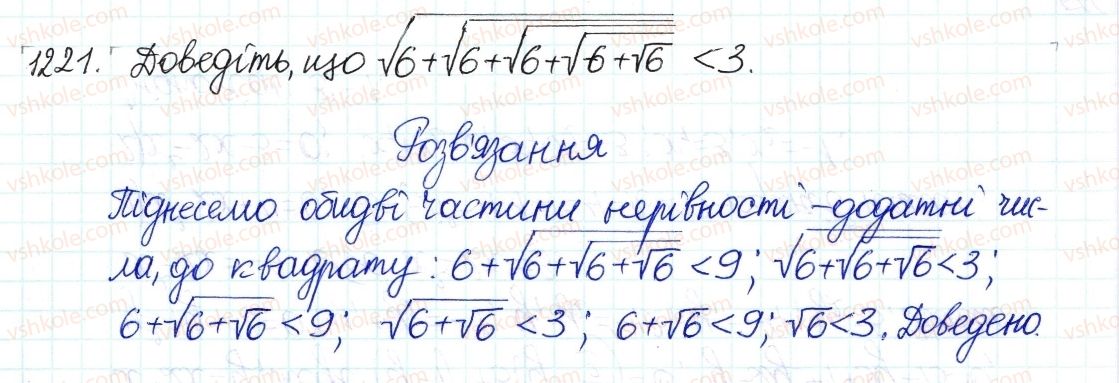 1221. Доведіть, що √6+√6+√6+√6+√6 < 3.
Розв'язання
Піднесемо обидві частини нерівності – додатні чис-
ла, до квадрату: 6+√6+√6+√6 < 9; √6+√6+√6 < 3;
6+√6+√6 < 9; √6+√6 < 3; 6+√6 < 9; √6 < 3. Доведено.